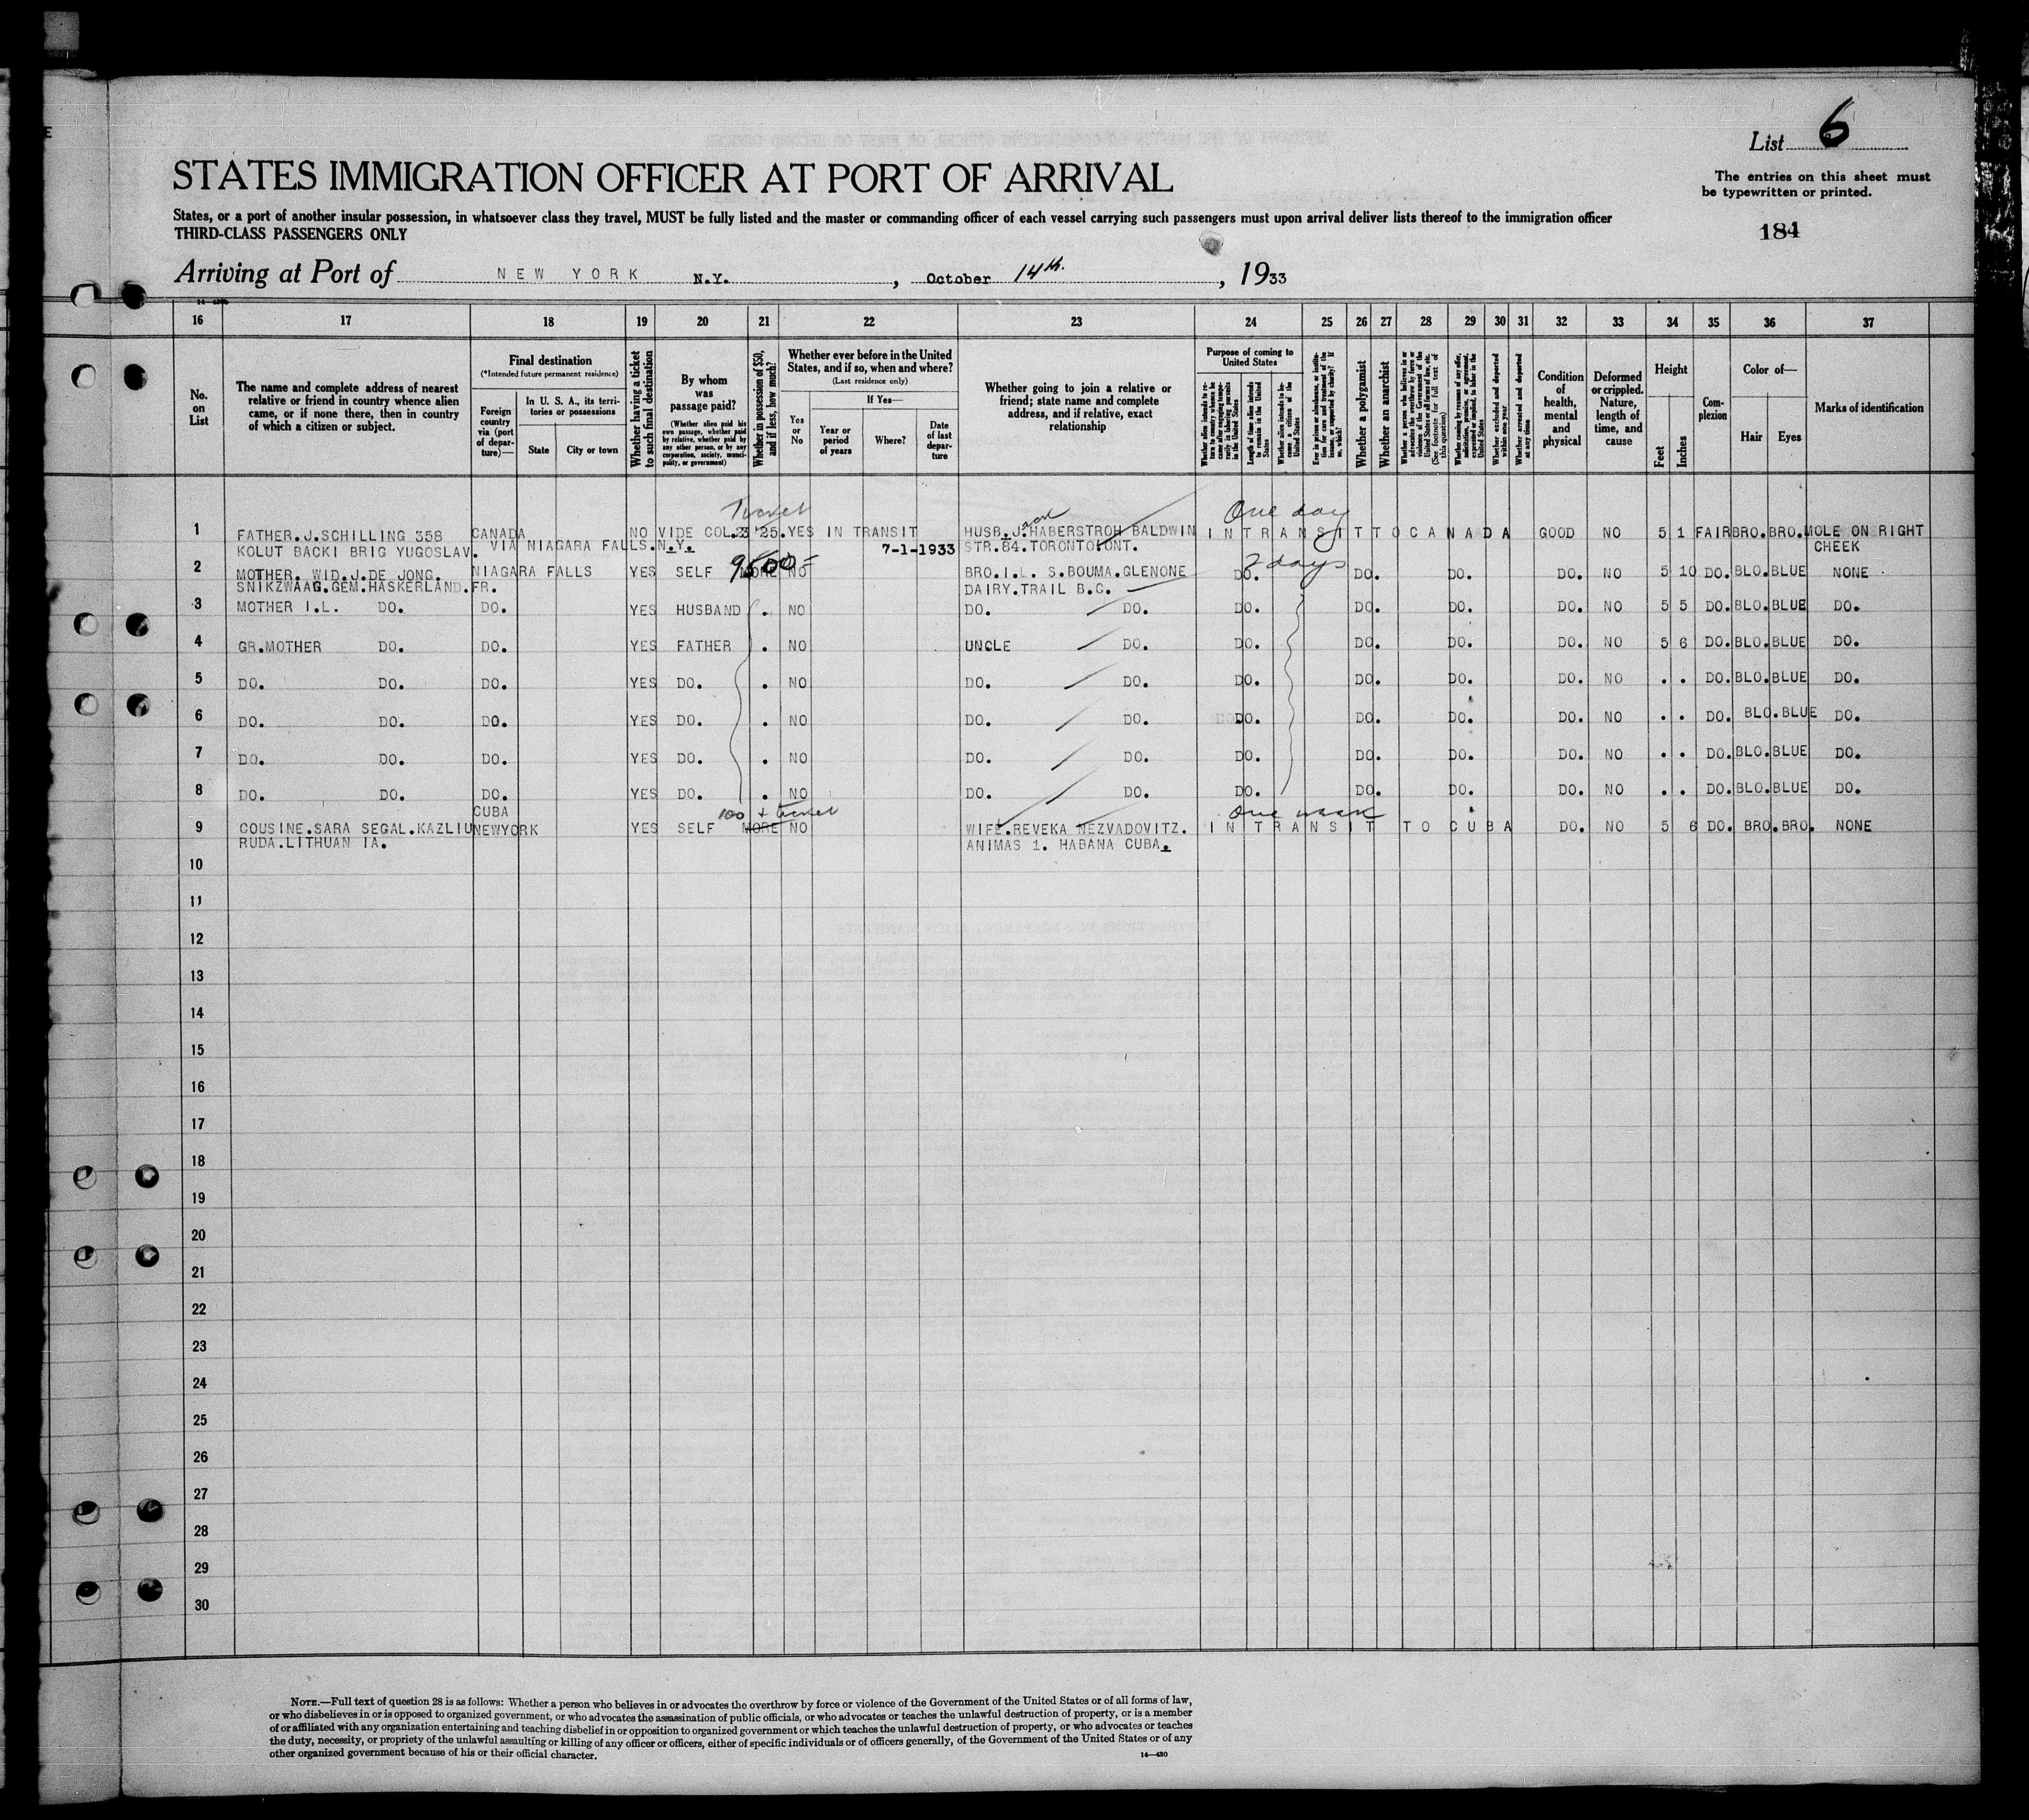 List 6
STATES IMMIGRATION OFFICER AT PORT OF ARRIVAL
The entries on this sheet must
be typewritten or printed.
States, or a port of another insular possession, in whatsoever class they travel, MUST be fully listed and the master or commanding officer of each vessel carrying such passengers must upon arrival deliver lists thereof to the immigration officer
THIRD-CLASS PASSENGERS ONLY
184
Arriving at Port of NEW YORK N.Y. , October 14th. , 1933
16 17 18 19 20 21 22 23 24 25 26 27 28 29 30 31 32 33 34 35 36 37
No. on List
The name and complete address of nearest
relative or friend in country whence alien
came, or if none there, then in country
of which a citizen or subject.
Final destination
(*Intended future permanent residence)
Foreign country via (port of departure)—
In U. S. A., its territories or possessions
State
City or town
Whether having a ticket to such final destination
By whom was passage paid?
(Whether alien paid his own passage, whether paid by relative, whether paid by any other person, or by any corporation, society, municipality, or government)
Whether in possession of $50, and if less, how much?
Whether ever before in the United States, and if so, when and where?
(Last residence only)
Yes or No
If Yes—
Year or period of years
Where?
Date of last departure
Whether going to join a relative or
friend; state name and complete
address, and if relative, exact
relationship
Purpose of coming to United States
Whether alien intends to return to country whence he came after engaging temporarily in laboring pursuits in the United States
Length of time alien intends to remain in the United States
Whether alien intends to become a citizen of the United States
Ever in prison or almshouse, or institution for care and treatment of the insane, or supported by charity? If so, which?
Whether a polygamist
Whether an anarchist
Whether a person who believes in or advocates the overthrow by force or violence of the Government of the United States or all forms of law, etc. (See footnote for full text of this question)
Whether coming by reason of any offer, solicitation, promise, or agreement, expressed or implied, to labor in the United States
Whether excluded and deported within one year
Whether arrested and deported at any time
Condition of health, mental and physical
Deformed or crippled. Nature, length of time, and cause
Height
Feet
Inches
Complexion
Color of—
Hair
Eyes
Marks of identification
Ticket One day
1 FATHER.J.SCHILLING 358 CANADA NO VIDE COL.23 '25. YES IN TRANSIT HUSB.J.HABERSTROH BALDWIN IN TRANSIT TO CANADA GOOD NO 5 1 FAIR BRO. BRO. MOLE ON RIGHT
KOLUT BACKI BRIG YUGOSLAV. VIA NIAGARA FALLS.N.Y. 7-1-1933 STR.84.TORONTO.ONT. CHEEK
2 MOTHER. WID.J.DE JONG. NIAGARA FALLS YES SELF MORE NO BRO.I.L. S.BOUMA.GLENONE DO. 2 days DO. DO. DO. NO 5 10 DO. BLO. BLUE NONE
SNIKZWAAG.GEM.HASKERLAND.FR. DAIRY.TRAIL B.C.
3 MOTHER I.L. DO. DO. YES HUSBAND . NO DO. DO. DO. DO. DO. DO. NO 5 5 DO. BLO. BLUE DO.
4 GR.MOTHER DO. DO. YES FATHER . NO UNCLE DO. DO. DO. DO. DO. NO 5 6 DO. BLO. BLUE DO.
5 DO. DO. DO. YES DO. . NO DO. DO. DO. DO. DO. DO. NO . . DO. BLO. BLUE DO.
6 DO. DO. DO. YES DO. . NO DO. DO. DO. DO. DO. DO. NO . . DO. BLO. BLUE DO.
7 DO. DO. DO. YES DO. . NO DO. DO. DO. DO. DO. DO. NO . . DO. BLO. BLUE DO.
8 DO. DO. DO. YES DO. . NO DO. DO. DO. DO. DO. DO. NO . . DO. BLO. BLUE DO.
CUBA 100 + ticket One week
9 COUSINE.SARA SEGAL.KAZLIU NEWYORK YES SELF MORE NO WIFE.REVEKA NEZVADOVITZ. IN TRANSIT TO CUBA DO. NO 5 6 DO. BRO. BRO. NONE
RUDA.LITHUAN IA. ANIMAS 1. HABANA CUBA.
10
11
12
13
14
15
16
17
18
19
20
21
22
23
24
25
26
27
28
29
30
NOTE.—Full text of question 28 is as follows: Whether a person who believes in or advocates the overthrow by force or violence of the Government of the United States or of all forms of law,
or who disbelieves in or is opposed to organized government, or who advocates the assassination of public officials, or who advocates or teaches the unlawful destruction of property, or is a member
of or affiliated with any organization entertaining and teaching disbelief in or opposition to organized government or which teaches the unlawful destruction of property, or who advocates or teaches
the duty, necessity, or propriety of the unlawful assaulting or killing of any officer or officers, either of specific individuals or of officers generally, of the Government of the United States or of any
other organized government because of his or their official character.
14—430